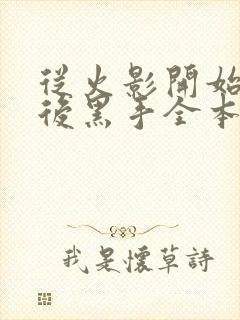 從火影開始
後黑手全本
我是懷草詩